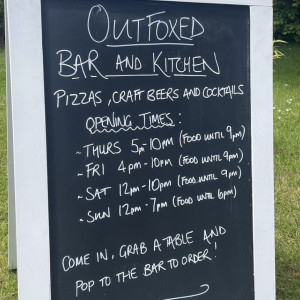 OUTFOXED
BAR AND KITCHEN
PIZZAS, CRAFT BEERS AND COCKTAILS
OPENING TIMES:
~ THURS 5pm-10pm (FOOD UNTIL 9pm)
~ FRI 4pm-10pm (FOOD UNTIL 9pm)
~ SAT 12pm-10pm (FOOD UNTIL 9pm)
~ SUN 12pm-7pm (FOOD UNTIL 6pm)
COME IN, GRAB A TABLE AND
POP TO THE BAR TO ORDER!